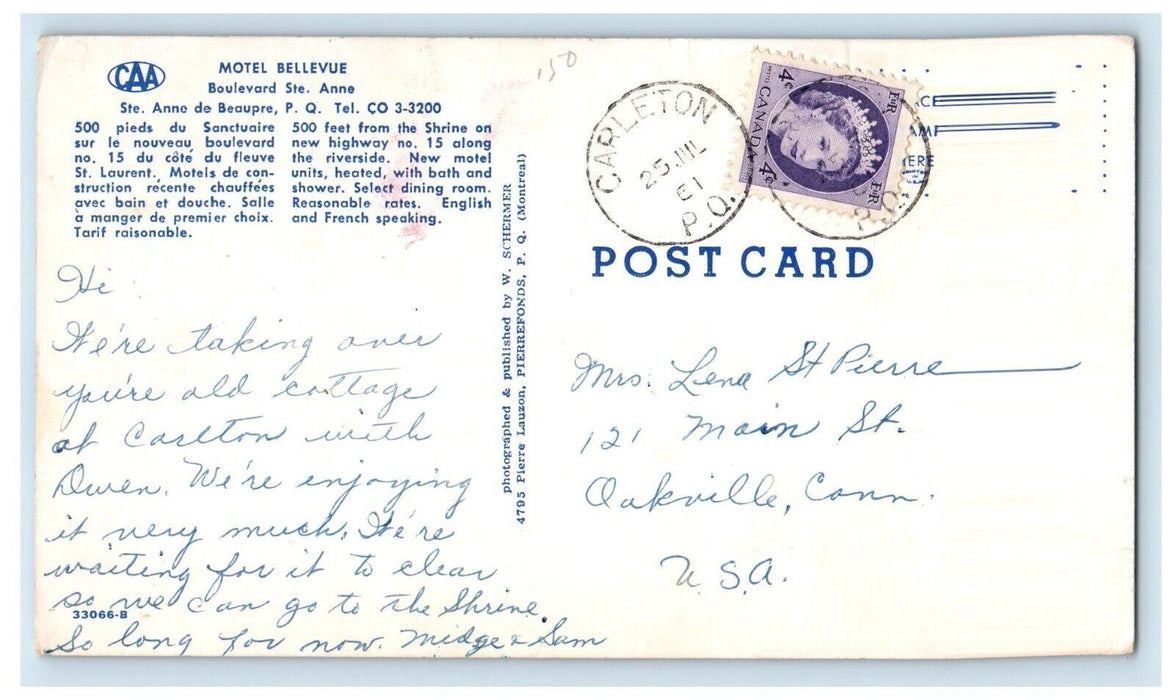 CAA
MOTEL BELLEVUE
Boulevard Ste. Anne
Ste. Anne de Beaupre, P. Q. Tel. CO 3-3200
500 pieds du Sanctuaire
sur le nouveau boulevard
no. 15 du côté du fleuve
St. Laurent. Motels de con-
struction récente chauffées
avec bain et douche. Salle
à manger de premier choix.
Tarif raisonable.
500 feet from the Shrine on
new highway no. 15 along
the riverside. New motel
units, heated, with bath and
shower. Select dining room.
Reasonable rates. English
and French speaking.
150
Hi
We're taking over
you're old cottage
at Carlton with
Owen. We're enjoying
it very much. We're
waiting for it to clear
so we can go to the Shrine.
33066-B
So long for now. Midge & Sam
photographed & published by W. SCHERMER
4795 Pierre Lauzon, PIERREFONDS, P. Q. (Montreal)
CARLETON
25 JUL
61
P.Q.
4¢ CANADA 4¢
EIIR
EIIR
P.Q.
ACE
AMP
ERE
POST CARD
Mrs. Lena St Pierre
121 Main St.
Oakville, Conn.
U.S.A.